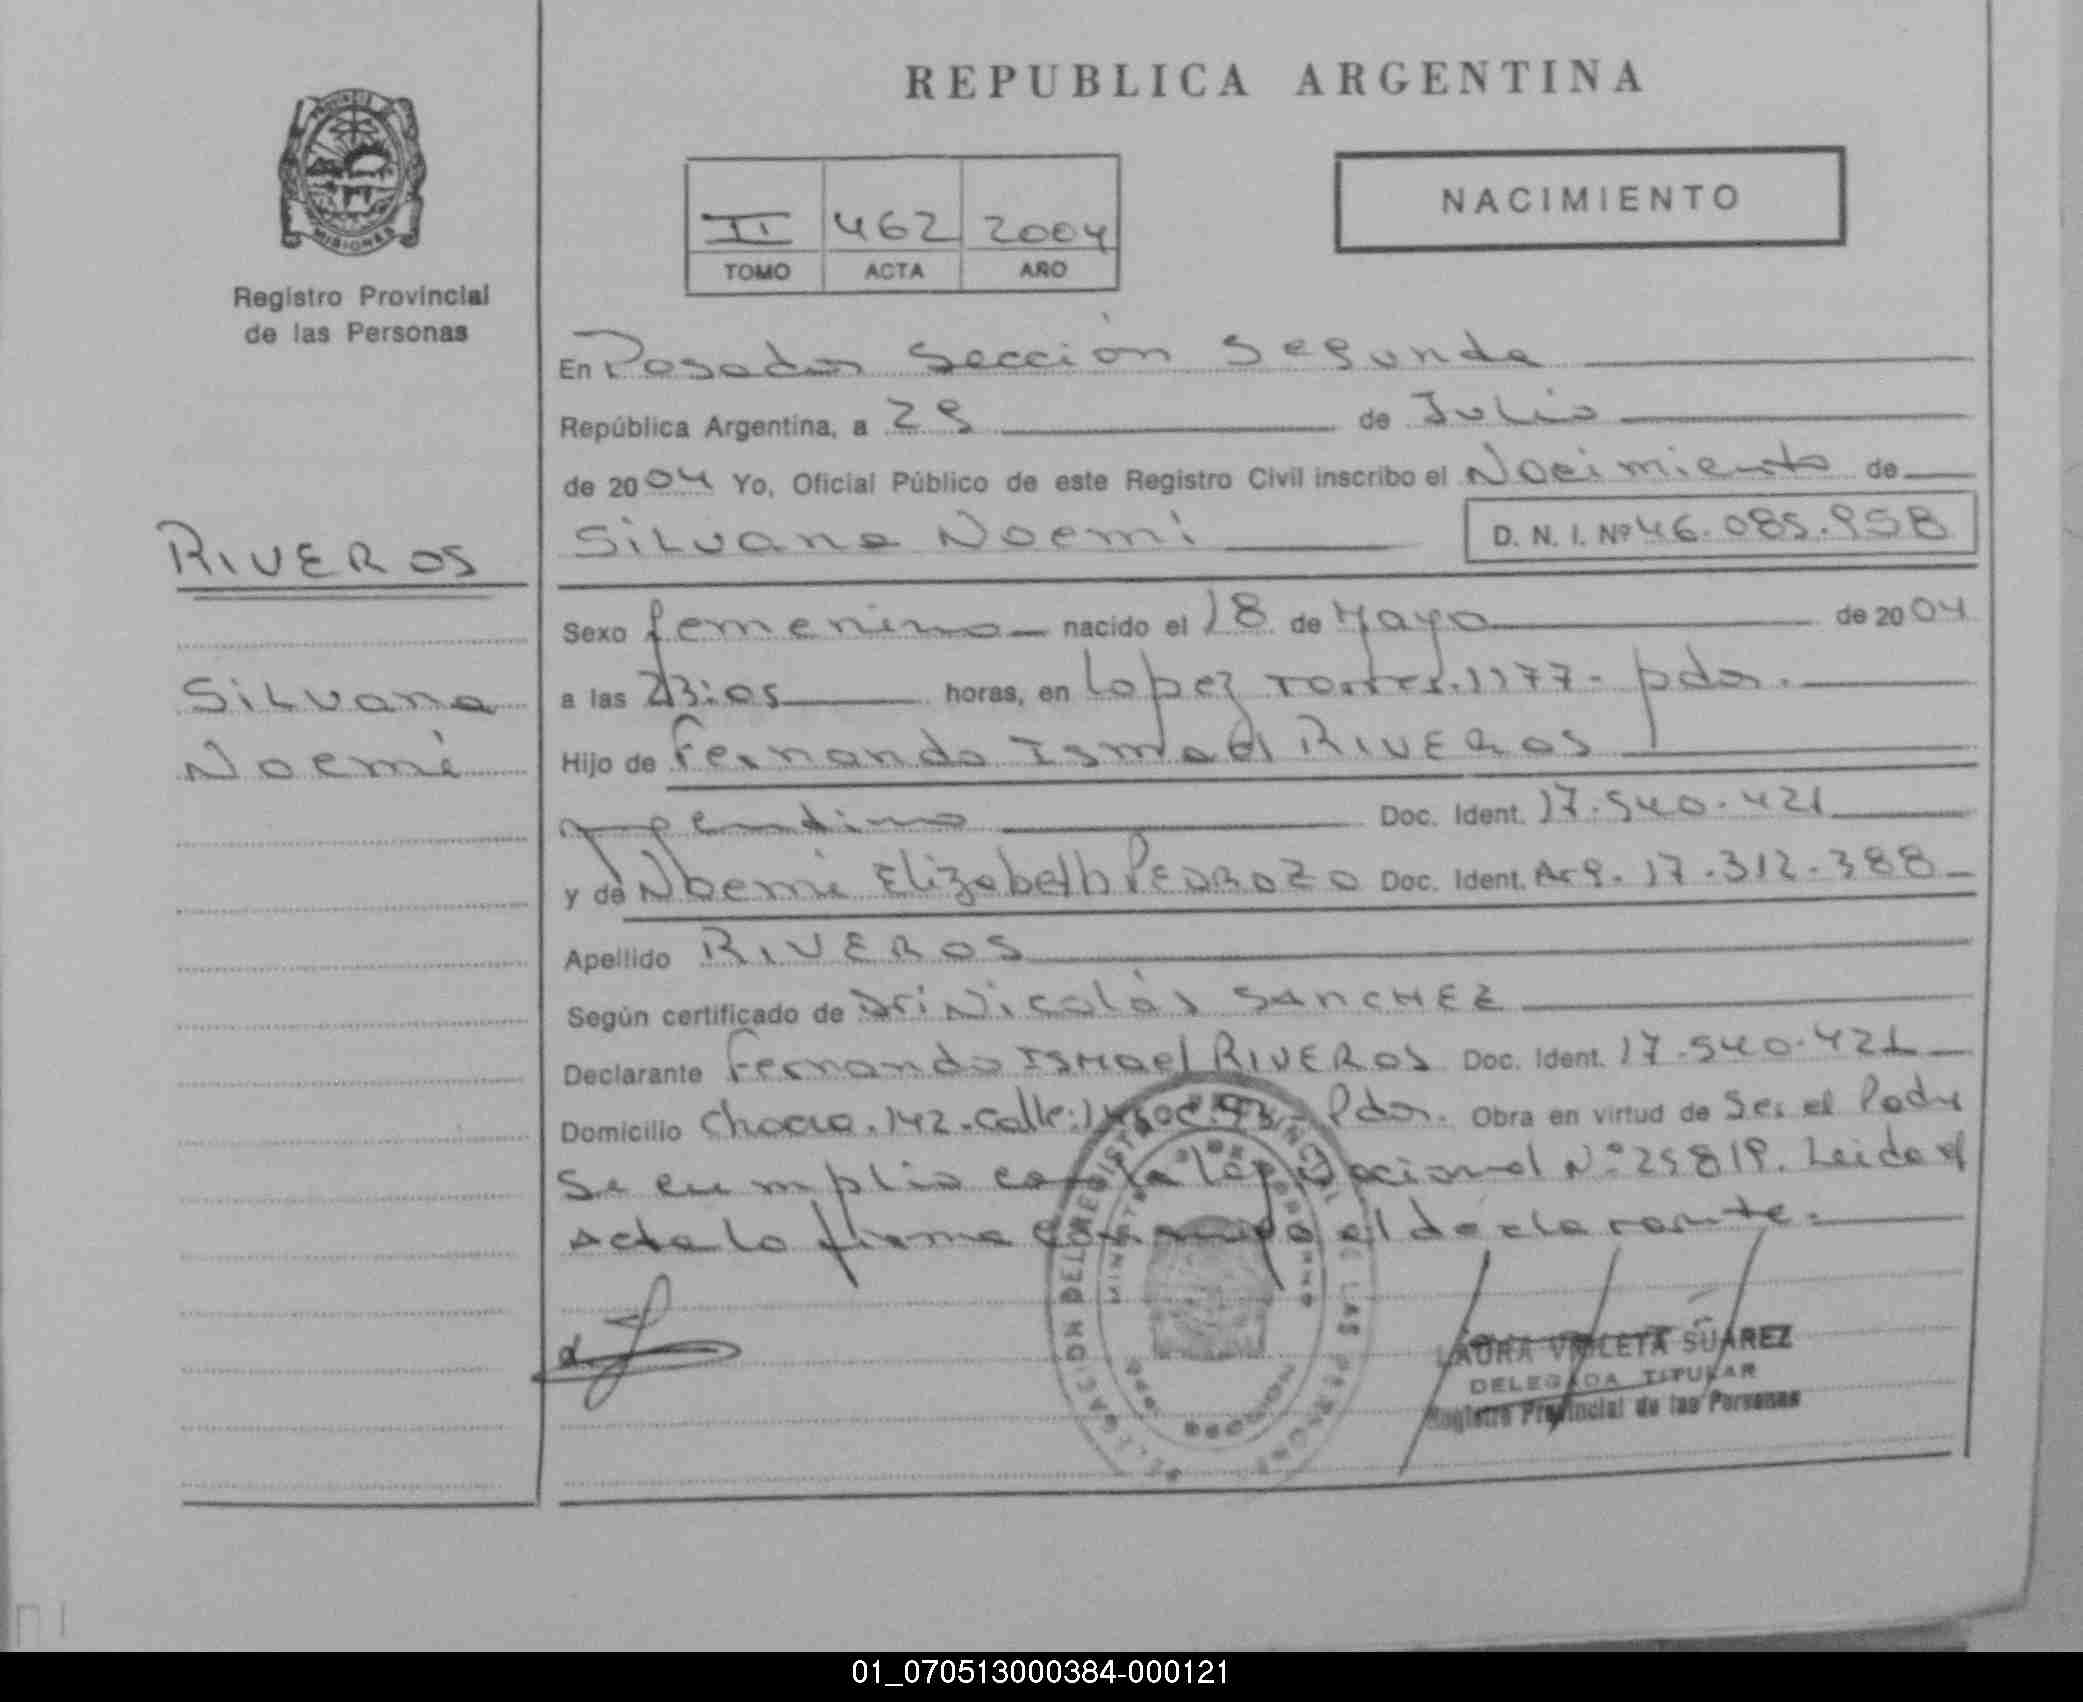 REPUBLICA ARGENTINA
PROVINCIA
MISIONES
Registro Provincial
de las Personas
NACIMIENTO
II 462 2004
TOMO ACTA AÑO
En Posadas Sección Segunda
República Argentina, a 29 de Julio
de 2004 Yo, Oficial Público de este Registro Civil inscribo el Nacimiento de
Silvana Noemi D. N. I. Nº 46.085.958
RIVEROS
Silvana
Noemí
Sexo femenino nacido el 18 de Mayo de 2004
a las 23:05 horas, en Lopez Torres.1177- pdas.
Hijo de Fernando Ismael RIVEROS
argentino Doc. Ident. 17.540.421
y de Noemi Elizabeth PEDROZO Doc. Ident. Arg. 17.312.388
Apellido RIVEROS
Según certificado de Dr: Nicolás SANCHEZ
Declarante Fernando ISMael RIVEROS Doc. Ident. 17.540.421
Domicilio Chacra.142.Calle: Pdas. Obra en virtud de Ser el Padre
Se cumplio con la Ley Nacional Nº 25819. Leida el
Acta la firma conmigo el declarante.
DELEGACION DEL REGISTRO PROVINCIAL DE LAS PERSONAS
MINISTERIO DE GOBIERNO
LAURA VIOLETA SUAREZ
DELEGADA TITULAR
Registro Provincial de las Personas
01_070513000384-000121